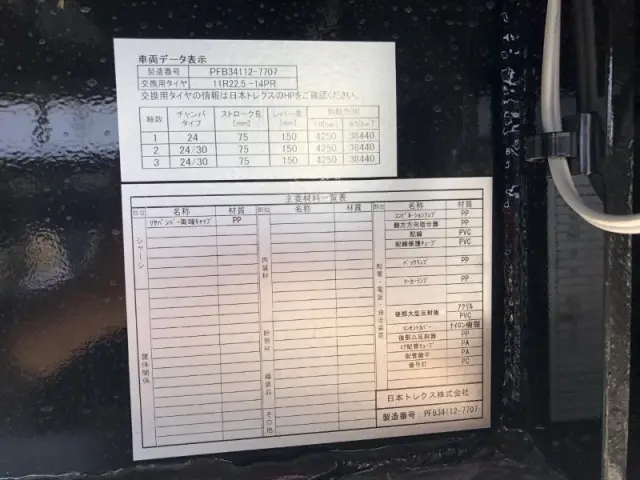 車両データ表示
製造番号 PFB34112-7707
交換用タイヤ 11R22.5 -14PR
交換用タイヤの情報は日本トレクスのHPをご確認ください。
軸数 チャンバタイプ ストローク長[mm] レバー長[mm] 制動力(N)
1 24 75 150 4250 38440
2 24/30 75 150 4250 38440
3 24/30 75 150 4250 38440
主要材料一覧表
部位 名称 材質 部位 名称 材質 部位 名称 材質
シャーシ
リヤバンパー両端キャップ PP
内装材
断熱材
緩衝品
その他
架体関係
コンビネーションランプ PP
側方方向指示器 PP
配線 PVC
配線保護チューブ PVC
バックランプ PP
マーカーランプ PP
アクリル
後部大型反射器 PVC
コンセントカバー ナイロン樹脂
後部△反射器 PP
エア配管チューブ PA
配管継手 PA
番号灯 PC
日本トレクス株式会社
製造番号:PFB34112-7707